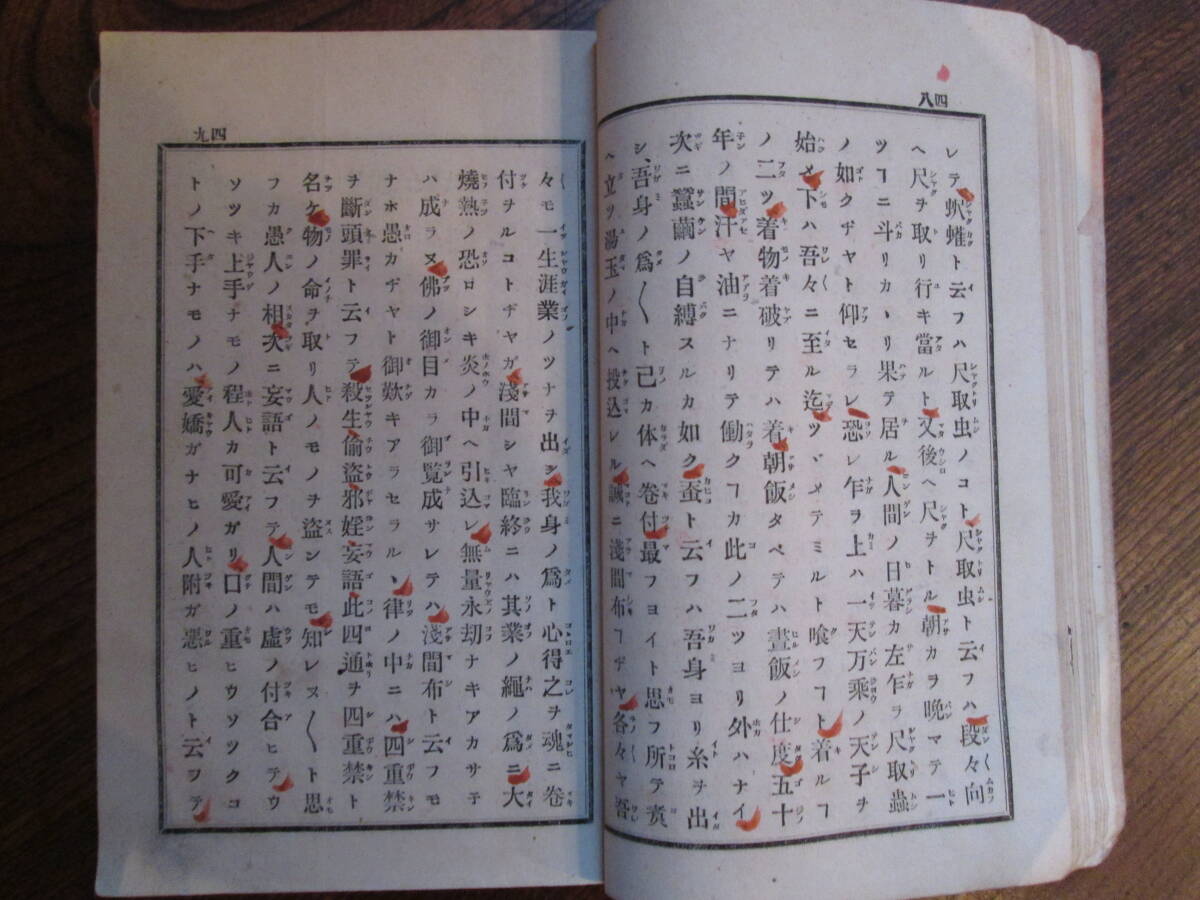 四八
レテ蚇蠖ト云フハ尺取虫ノコト尺取虫ト云フハ段々向
ヘ尺ヲ取リ行キ當ルト又後ヘ尺ヲトル朝カラ晩マテ一
ツヿニ斗リカヽリ果テ居ル人間ノ日暮カ左乍ラ尺取蟲
ノ如クヂヤト仰セラレ恐レ乍ヲ上ハ一天万乘ノ天子ヲ
始メ下ハ吾々ニ至ル迄ツヾメテミルト喰フヿト着ルヿ
ノ二ツ着物着破リテハ着朝飯タベテハ晝飯ノ仕度五十
年ノ間汗ヤ油ニナリテ働クヿカ此ノ二ツヨリ外ハナイ
次ニ蠶繭ノ自縛スルカ如ク蚕ト云フハ吾身ヨリ糸ヲ出
シ、吾身ノ爲〱ト己カ体ヘ卷付最フヨイト思フ所テ
ヘ立ツ湯玉ノ中ヘ投込レル誠ニ淺間布ヿヂヤ各々ヤ吾
四九
々モ一生涯業ノツナヲ出シ我身ノ爲ト心得之ヲ魂ニ卷
付ヲルコトヂヤガ淺間シヤ臨終ニハ其業ノ繩ノ爲ニ大
燒熱ノ恐ロシキ炎ノ中ヘ引込レ無量永劫ナキアカサテ
ハ成ラヌ佛ノ御目カラ御覧成サレテハ淺間布ト云フモ
ナホ愚カヂヤト御歎キアラセラル、律ノ中ニハ四重禁
ヲ斷頭罪ト云フテ殺生偷盗邪婬妄語此四通ヲ四重禁ト
名ケ物ノ命ヲ取リ人ノモノヲ盗ンテモ知レヌ〱ト思
フカ愚人ノ相次ニ妄語ト云フテ人間ハ虚ノ付合ヒテウ
ソツキ上手ナモノ程人カ可愛ガリ口ノ重ヒウソツクコ
トノ下手ナモノハ愛嬌ガナヒノ人附ガ惡ヒノト云フテ